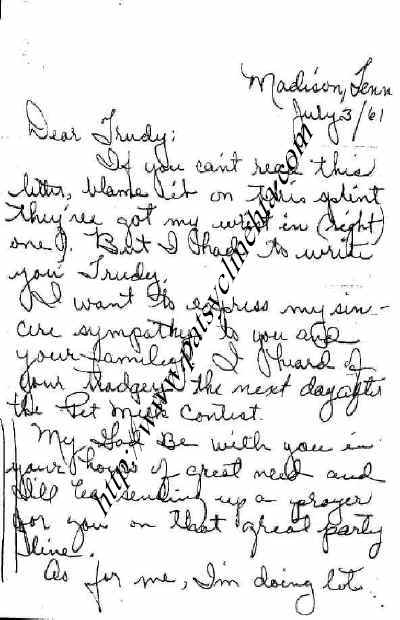 Madison, Tenn
July 3/61
Dear Trudy;
If you can't read this
letter, blame it on this splint
they've got my wrist in (right
one). But I had to write
you Trudy,
I want to express my sin-
cere sympathey to you and
your families. I heard of
your tradgery the next day after
the Pet Milk Contest.
My God Be with you in
your hours of great need and
I'll be sending up a prayer
for you on that great party
line.
As for me, I'm doing lots
http://www.patsyclinehbr.com